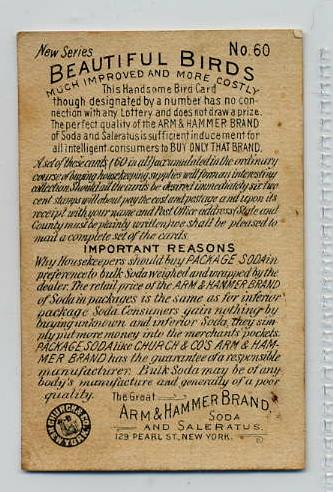 New Series No. 60
BEAUTIFUL BIRDS
MUCH IMPROVED AND MORE COSTLY
This Handsome Bird Card
though designated by a number has no con-
nection with any Lottery and does not draw a prize.
The perfect quality of the ARM & HAMMER BRAND
of Soda and Saleratus is sufficient inducement for
all intelligent consumers to BUY ONLY THAT BRAND.
A set of these cards (60 in all) accumulated in the ordinary
course of buying housekeeping supplies will form an interesting
collection. Should all the cards be desired immediately six two
cent stamps will about pay the cost and postage and upon its
receipt with your name and Post Office address (State and
County must be plainly written) we shall be pleased to
mail a complete set of the cards.
IMPORTANT REASONS
Why Housekeepers should buy PACKAGE SODA in
preference to bulk Soda weighed and wrapped by the
dealer. The retail price of the ARM & HAMMER BRAND
of Soda in packages is the same as for inferior
package Soda. Consumers gain nothing by
buying unknown and inferior Soda, they sim-
ply put more money into the merchants pockets.
PACKAGE SODA like CHURCH & CO'S ARM & HAM-
MER BRAND has the guarantee of a responsible
manufacturer. Bulk Soda may be of any
body's manufacture and generally of a poor
quality. The Great
ARM & HAMMER BRAND
SODA
AND SALERATUS.
129 PEARL ST., NEW YORK.
CHURCH & CO.
NEW YORK